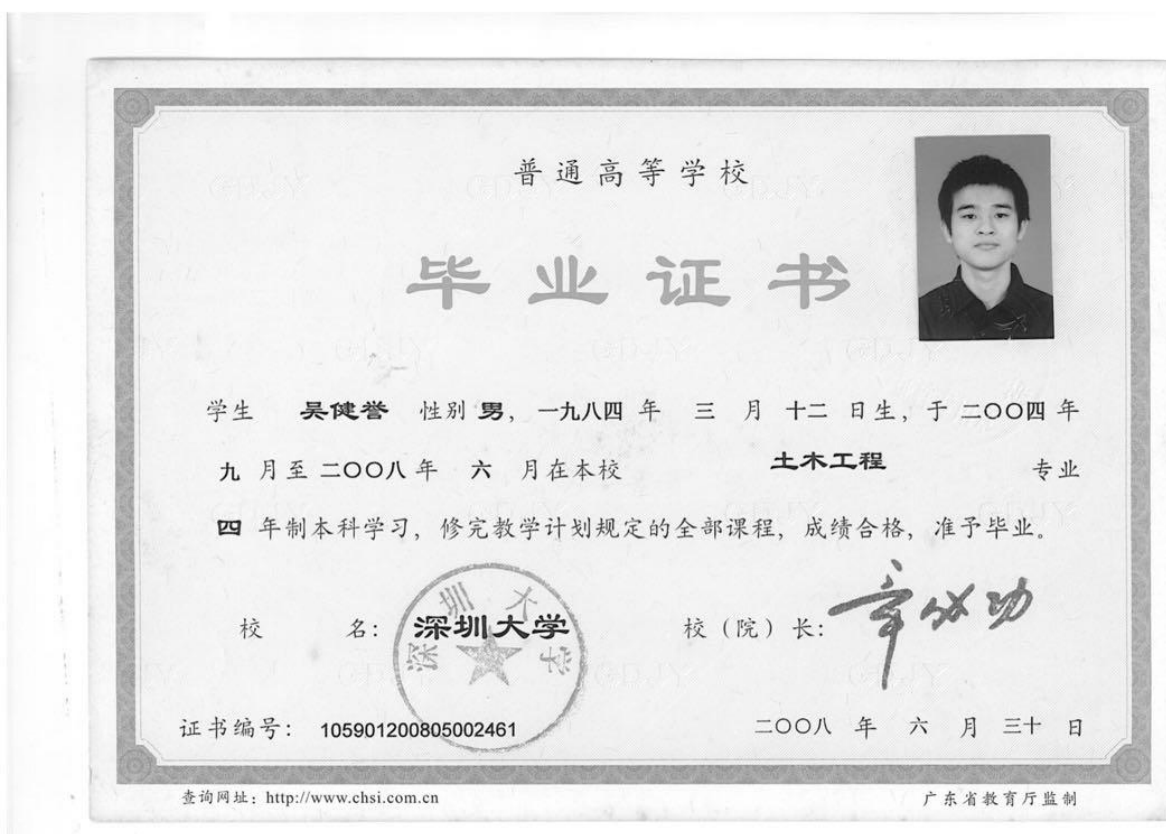 普通高等学校
毕业证书
学生 吴健誉 性别 男，一九八四 年 三 月 十二 日生，于 二〇〇四 年
九 月至 二〇〇八 年 六 月在本校 土木工程 专业
四 年制本科学习，修完教学计划规定的全部课程，成绩合格，准予毕业。
校 名：深圳大学 校（院）长：章必功
深圳大学
证书编号：105901200805002461 二〇〇八 年 六 月 三十 日
查询网址：http://www.chsi.com.cn 广东省教育厅监制